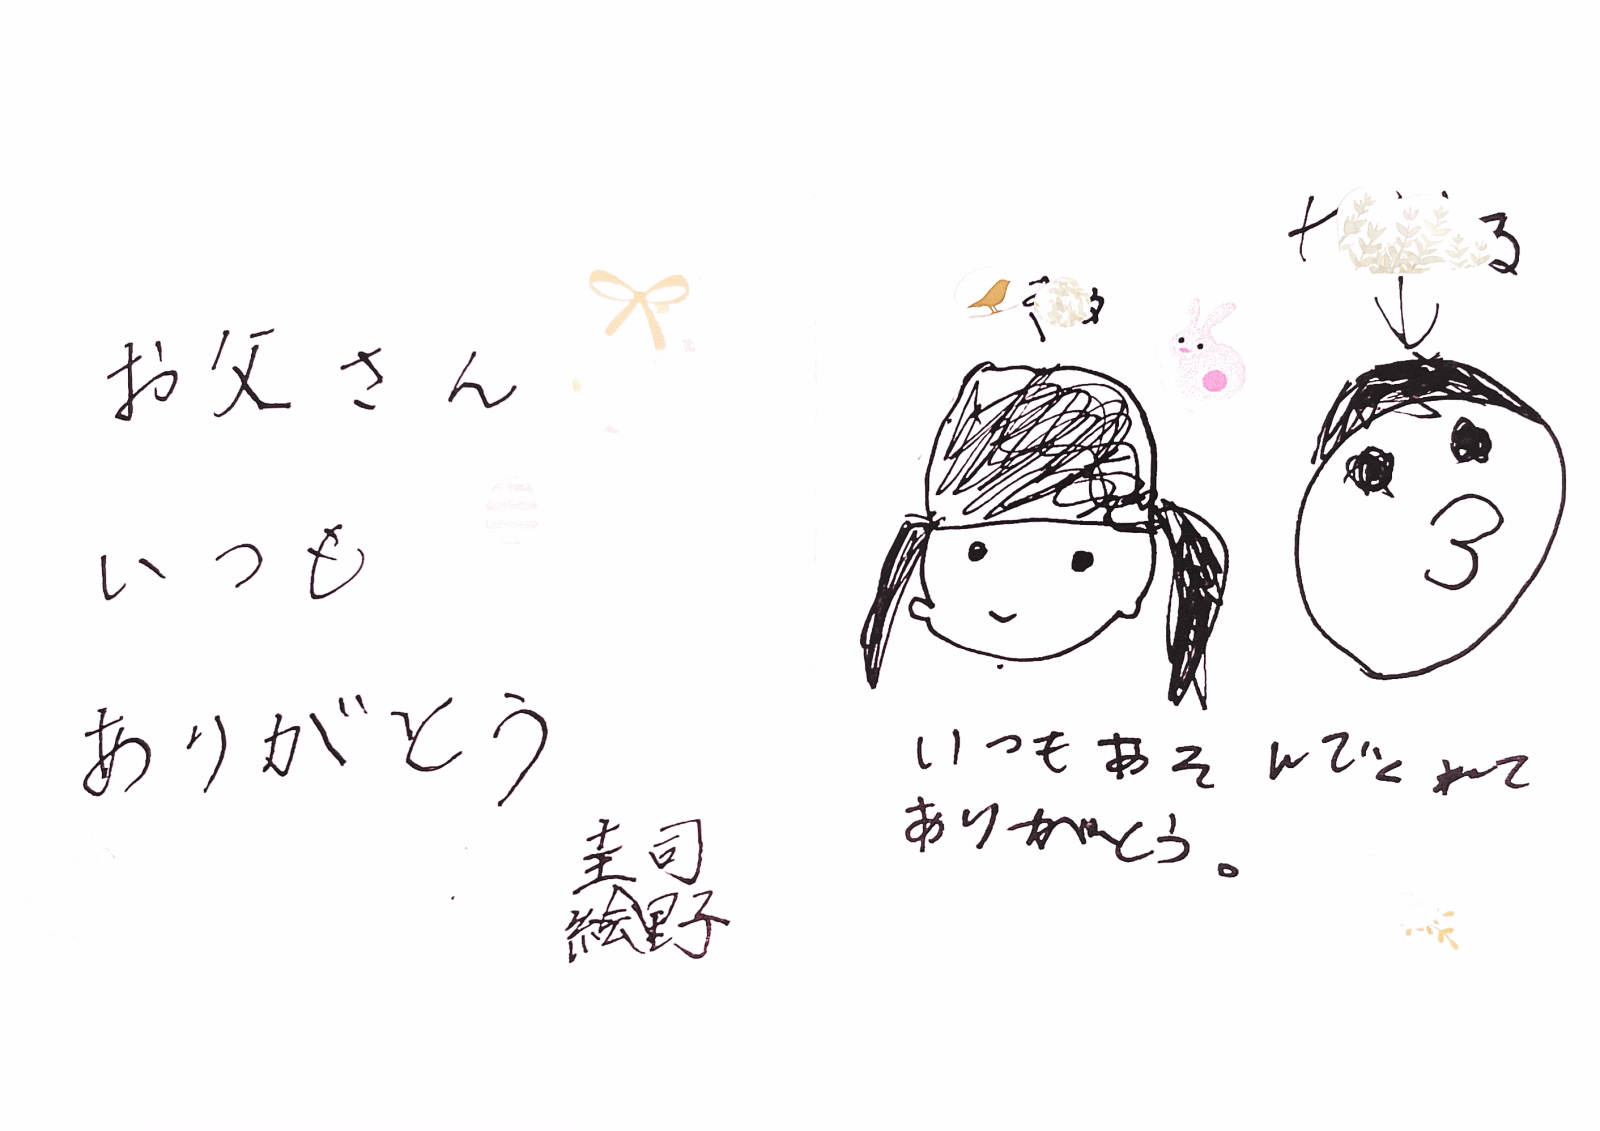 お父さん
いつも
ありがとう
圭司
絵里子
いつもあそんでくれて
ありがとう。